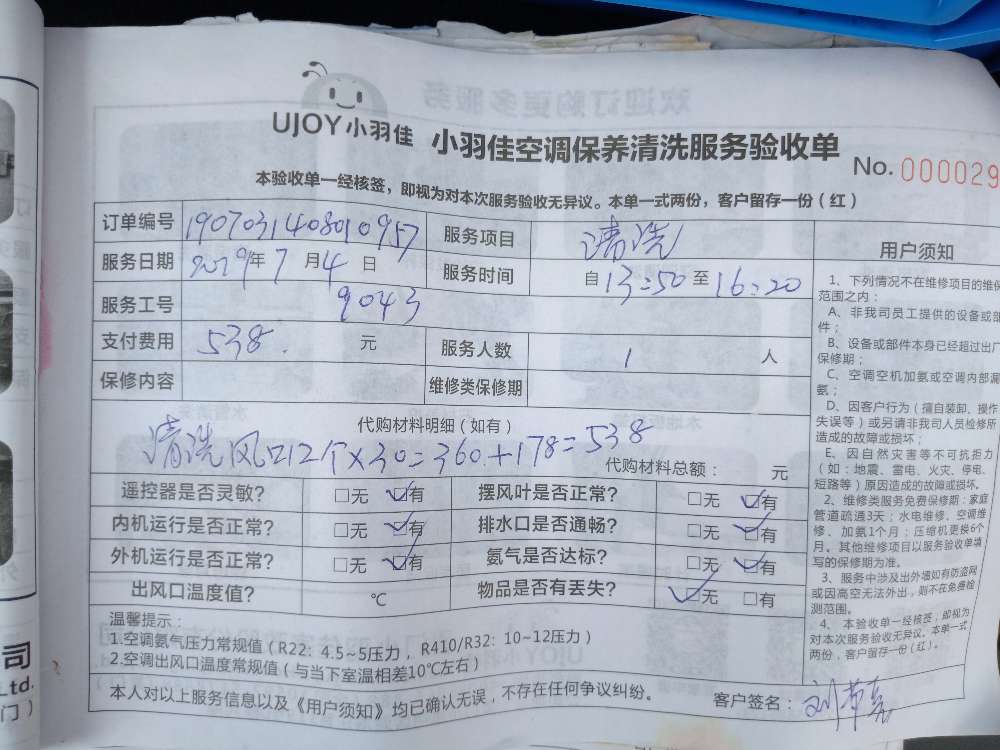 UJOY小羽佳 小羽佳空调保养清洗服务验收单
No. 000029
本验收单一经核签，即视为对本次服务验收无异议。本单一式两份，客户留存一份（红）
订单编号 1907031408010957 服务项目 清洗
服务日期 2019年7月4日 服务时间 自13:50至16:20
服务工号 9043
支付费用 538. 元 服务人数 1 人
保修内容 维修类保修期
代购材料明细（如有）
清洗风口12个×30=360+178=538
代购材料总额： 元
遥控器是否灵敏? □无 ☑有 摆风叶是否正常? □无 ☑有
内机运行是否正常? □无 ☑有 排水口是否通畅? □无 ☑有
外机运行是否正常? □无 ☑有 氨气是否达标? □无 ☑有
出风口温度值? ℃ 物品是否有丢失? ☑无 □有
温馨提示：
1.空调氨气压力常规值（R22：4.5~5压力，R410/R32：10~12压力）
2.空调出风口温度常规值（与当下室温相差10℃左右）
本人对以上服务信息以及《用户须知》均已确认无误，不存在任何争议纠纷。 客户签名：
用户须知
1、下列情况不在维修项目的维保
范围之内：
A、非我司员工提供的设备或部
件；
B、设备或部件本身已经超过出厂
保修期；
C、空调空机加氨或空调内部漏
氨；
D、因客户行为（擅自装卸、操作
失误等）或另请非我司人员检修所
造成的故障或损坏；
E、因自然灾害等不可抗拒力
（如：地震、雷电、火灾、停电、
短路等）原因造成的故障或损坏。
2、维修类服务免费保修期：家庭
管道疏通3天；水电维修、空调维
修、加氨1个月；压缩机更换6个
月。其他维修项目以服务验收单填
写的保修期为准。
3、服务中涉及出外墙如有防盗网
或因高空无法外出，则不在免费检
测范围。
4、本验收单一经核签，即视为
对本次服务验收无异议。本单一式
两份，客户留存一份（红）。
司
Ltd.
门）